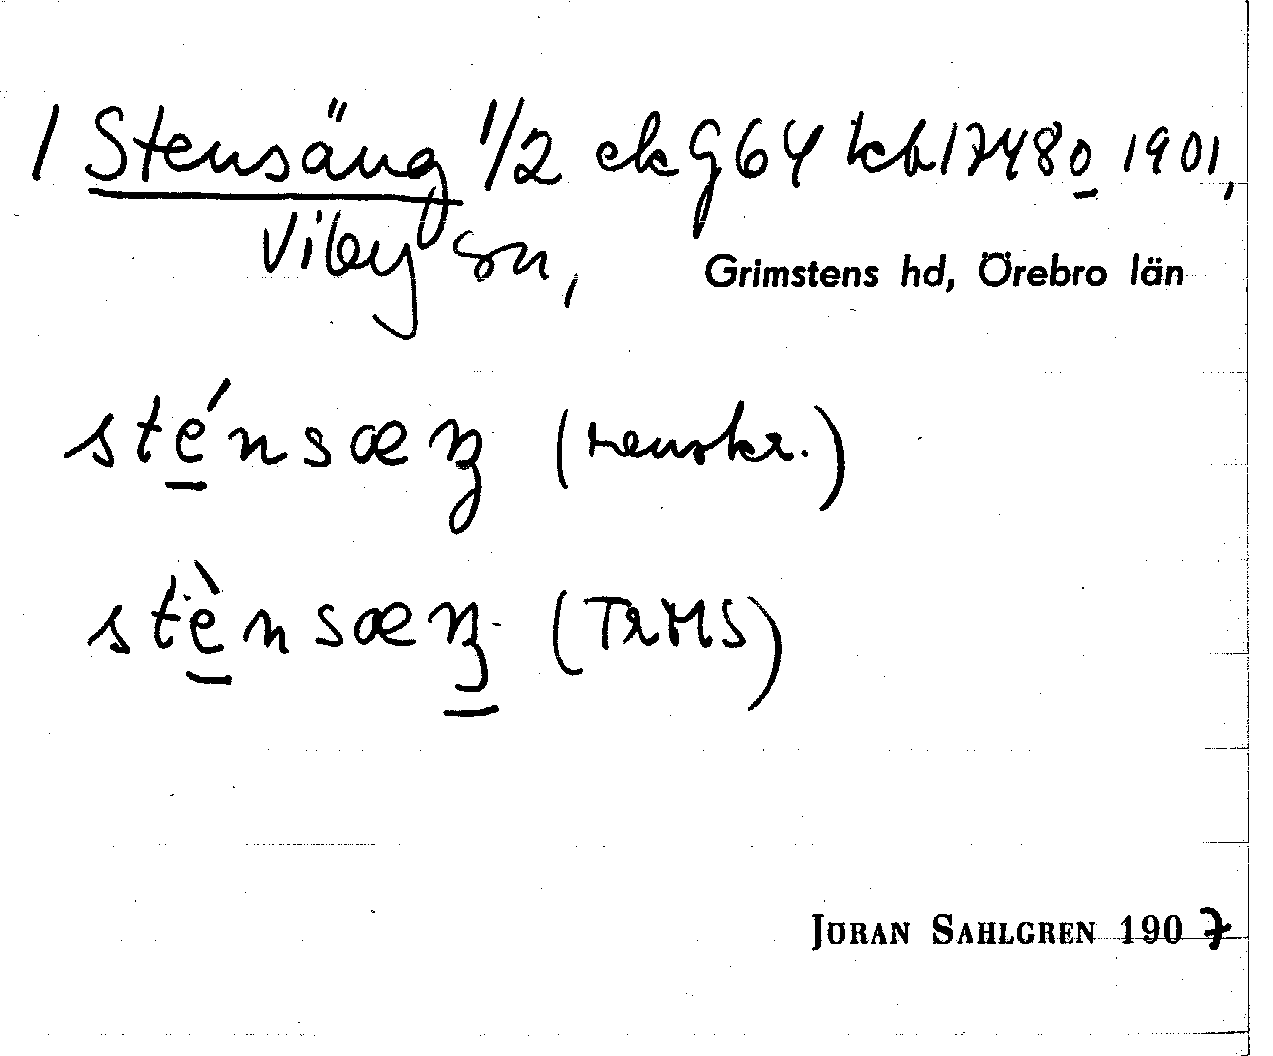 1 Stensäng 1/2 ek G64 kbl 7480 1901,
Viby sn,
Grimstens hd, Örebro län
sténsæŋ (renskr.)
stènsæŋ (TRMS)
JÖRAN SAHLGREN 1907